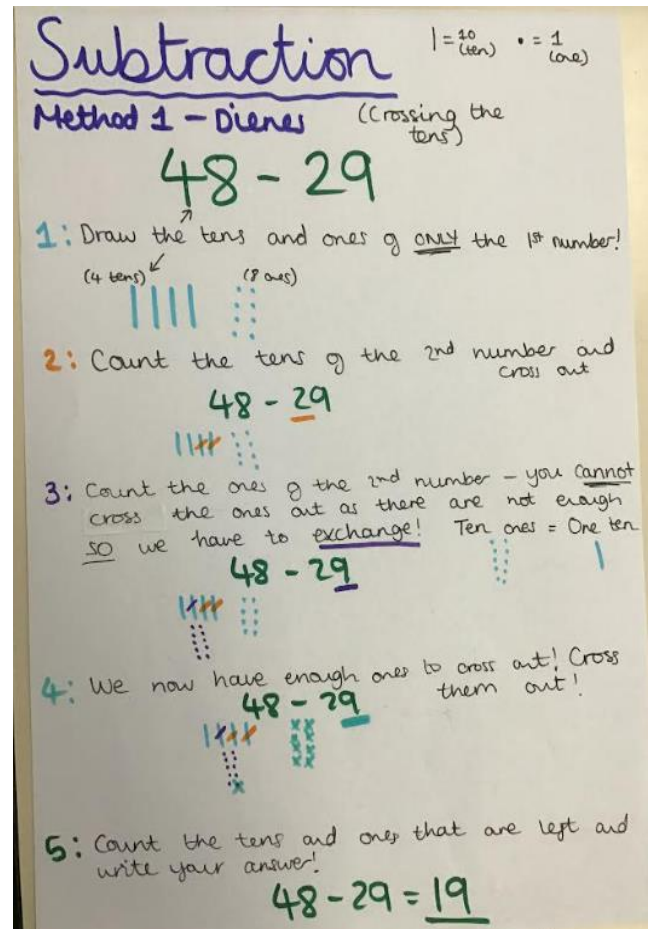 Subtraction
| = 10 (ten) • = 1 (one)
Method 1 - Dienes (Crossing the tens)
48 - 29
1: Draw the tens and ones of ONLY the 1st number!
(4 tens) (8 ones)
2: Count the tens of the 2nd number and
cross out
48 - 29
3: Count the ones of the 2nd number - you cannot
cross the ones out as there are not enough
so we have to exchange! Ten ones = One ten
48 - 29
4: We now have enough ones to cross out! Cross
them out!
48 - 29
5: Count the tens and ones that are left and
write your answer!
48 - 29 = 19